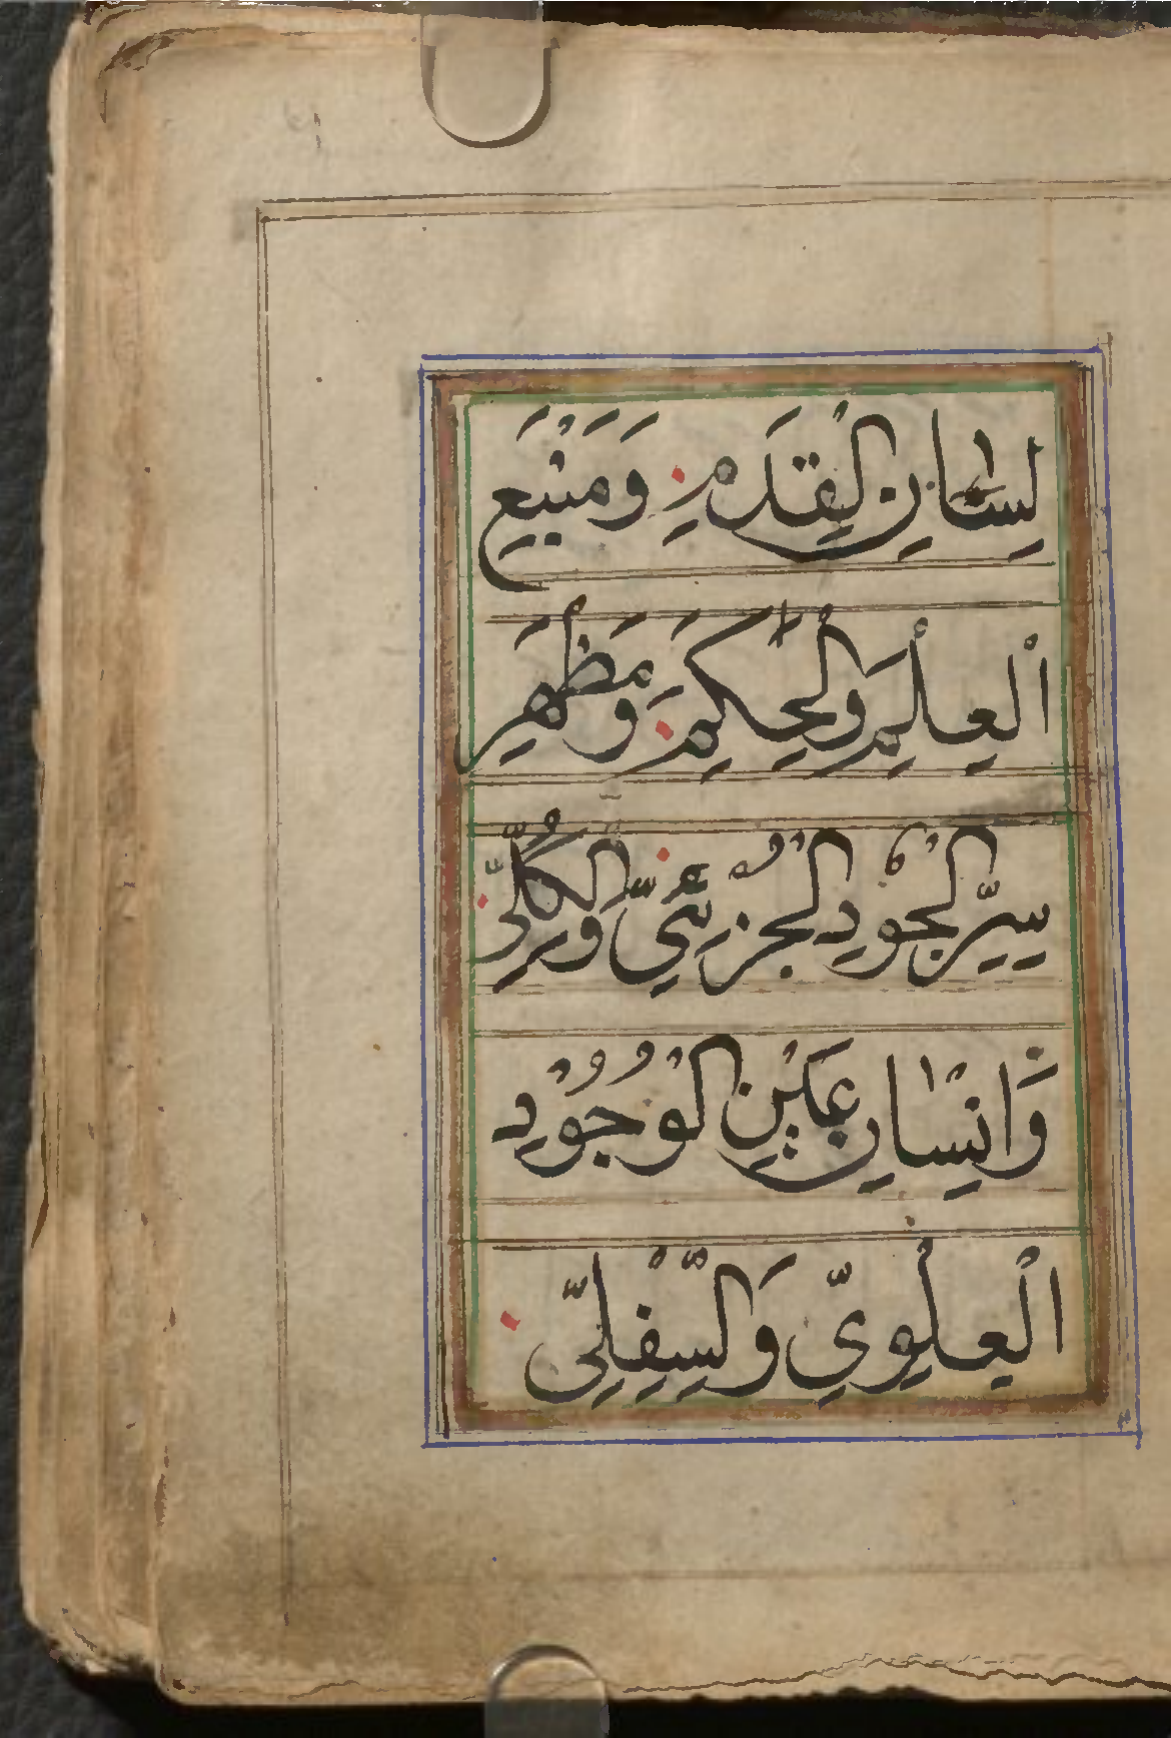 لِسَانِ الْقِدَمِ وَمَنْبَعِ
الْعِلْمِ وَالْحِكَمِ وَمَظْهَرِ
سِرِّ الْجُوْدِ الْجُزْئِيِّ وَالْكُلِّيِّ
وَانْسَانِ عَيْنِ الْوُجُوْدِ
الْعِلْوِيِّ وَالسِّفْلِيِّ